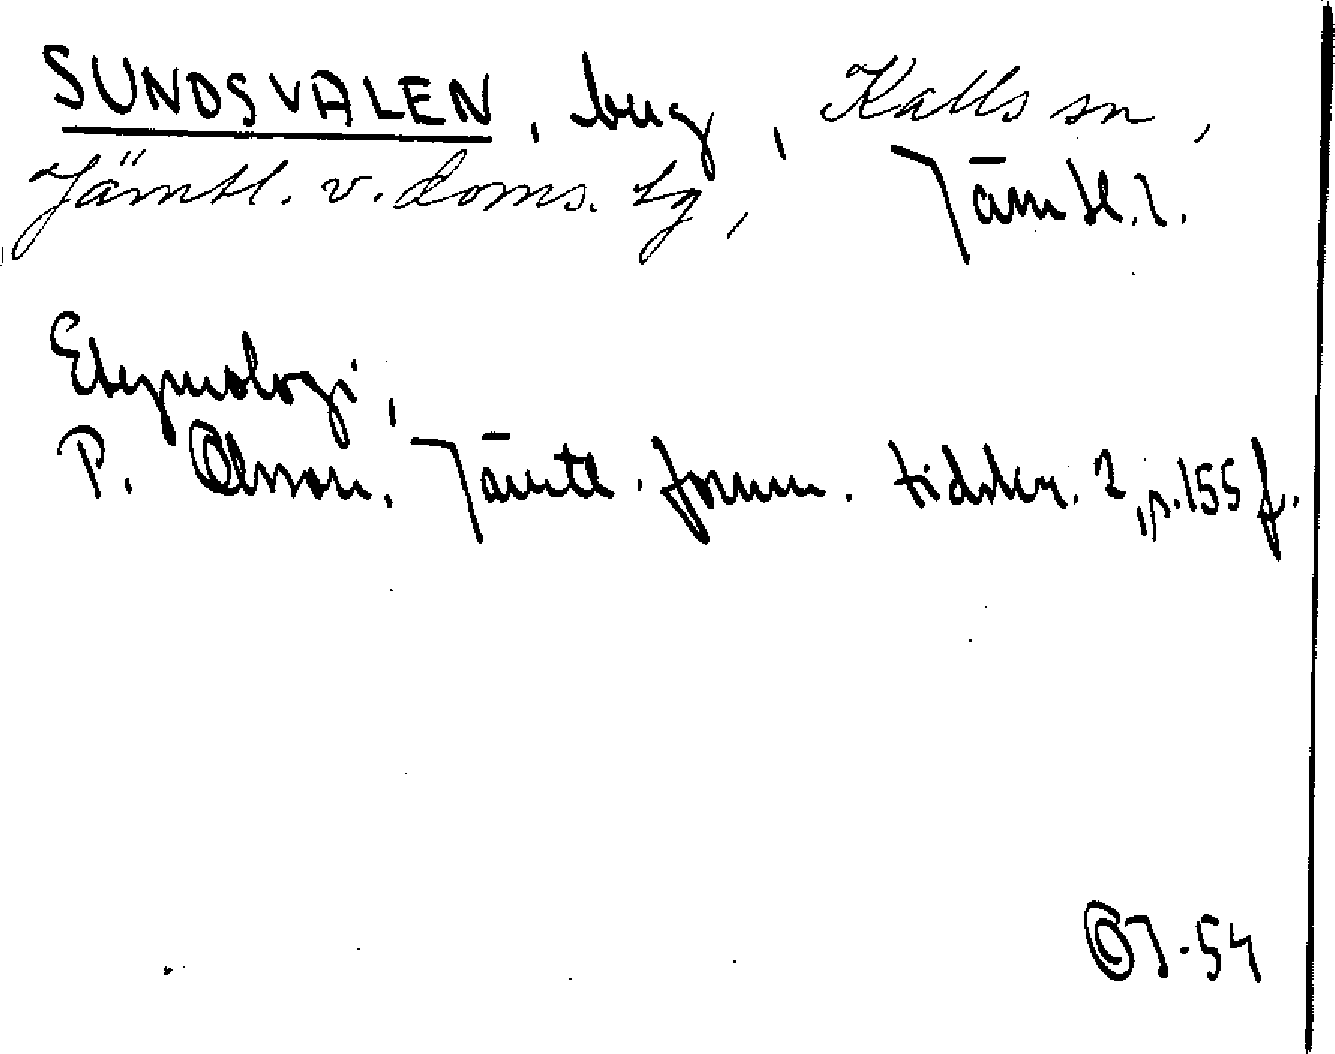 SUNDSVALEN, berg, Kalls sn,
Jämtl. v. doms. tg, Jämtl. l.
Etymologi,
P. Olsson, Jämtl. fornm. tidskr. 2, p. 155 f.
OJ-54